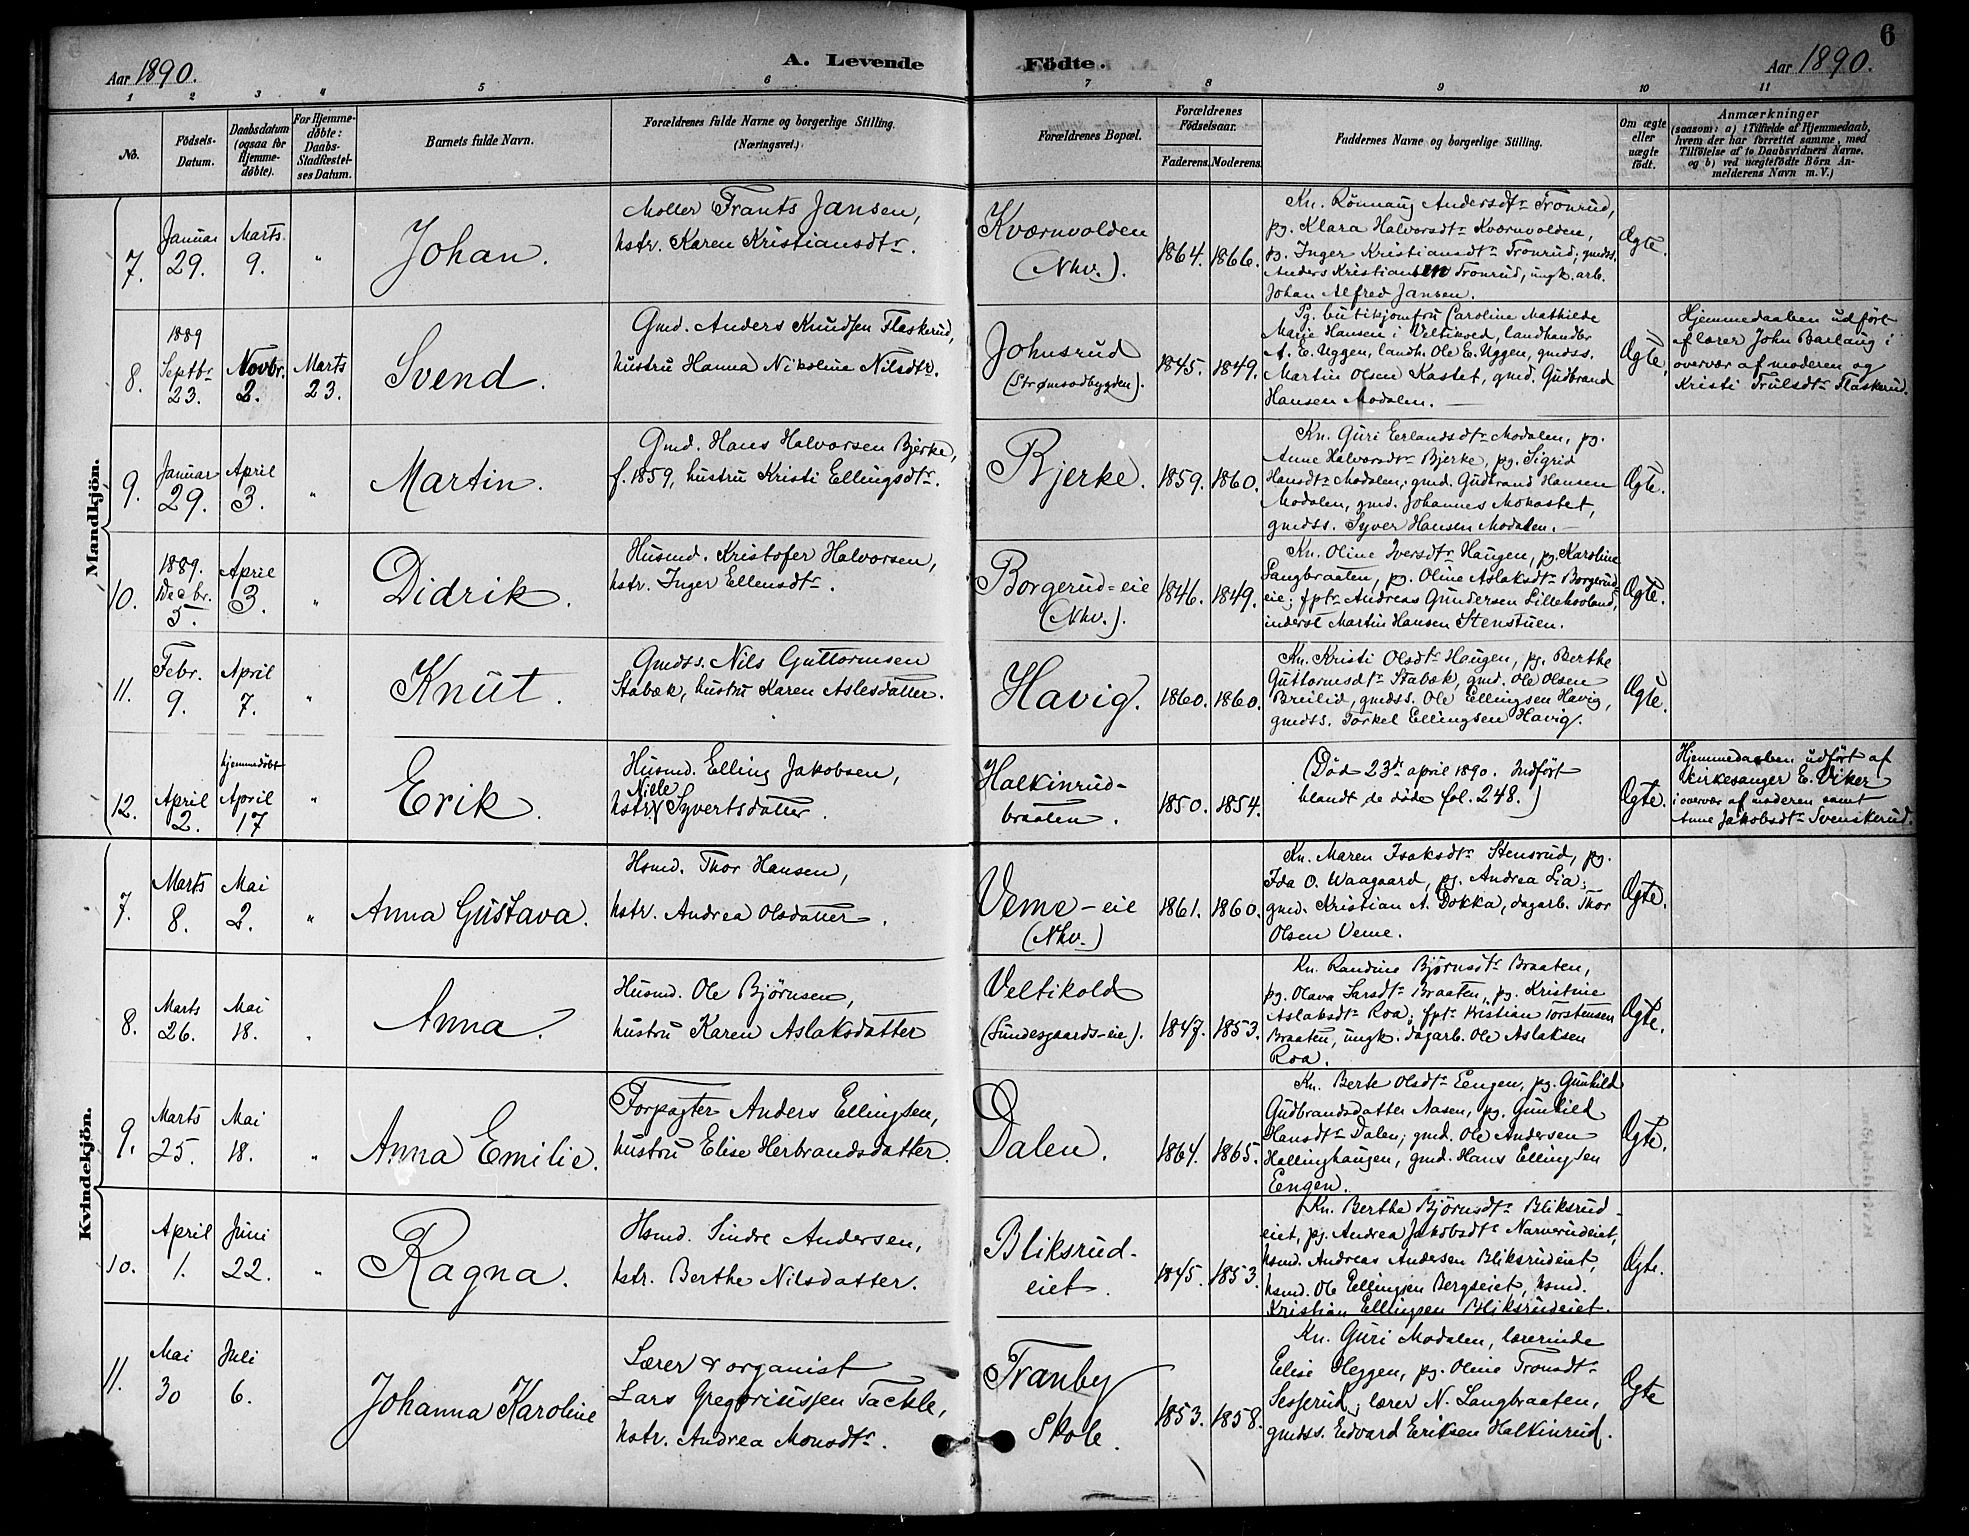 6
Aar 1890.
A. Levende
Fødte.
Aar 1890.
1 2 3 4 5 6 7 8 9 10 11
No.
Fødsels-
Datum.
Daabsdatum
(ogsaa for
Hjemme-
døbte).
For Hjemme-
døbte:
Daabs-
Stadfæstel-
ses Datum.
Barnets fulde Navn.
Forældrenes fulde Navne og borgerlige Stilling.
(Næringsvei.)
Forældrenes Bopæl.
Forældrenes
Fødselsaar.
Faderens. Moderens.
Faddernes Navne og borgerlige Stilling.
Om ægte
eller
uægte
født.
Anmærkninger
(saasom: a) i Tilfælde af Hjemmedaab,
hvem der har forrettet samme, med
Tilføielse af to Daabsvidners Navne.
og b) ved uægtefødte Börn An-
melderens Navn m. V.)
Mandkjön.
7.
Januar
29.
Marts
9.
"
Johan.
Møller Frants Jansen,
hstr. Karen Kristiansdtr.
Kværnvolden
(Nhv.).
1864. 1866.
Kn. Rönnaug Andersdtr Tronrud,
pg. Klara Halvorsdtr Kværnvolden,
pg. Inger Kristiansdtr Tronrud; gmdss.
Anders Kristiansen Tronrud, ungk. arb.
Johan Alfred Jansen.
Ægte.
8.
1889
Septbr
23.
Novbr.
2.
Marts
23.
Svend.
Gmd. Anders Knudsen Flaskerud,
hustru Hanna Nikoline Nilsdtr.
Johnsrud
(Strömsodbygden).
1845. 1849.
Pg. butikjomfru Caroline Mathilde
Marie Hansen i Veltikved, landhandler
A. E. Uggen, landh. Ole E. Uggen, gmdss.
Martin Olsen Kastet, gmd. Gudbrand
Hansen Modalen.
Ægte.
Hjemmedaaben udfört
af lærer John Barlaug i
overvær af moderen og
Kristi Trulsdtr Flaskerud.
9.
Januar
29.
April
3.
"
Martin.
Gmd. Hans Halvorsen Bjerke,
f. 1859, hustru Kristi Ellingsdtr.
Bjerke.
1859. 1860.
Kn. Guri Erlandsdtr Modalen, pg.
Anne Halvorsdtr Bjerke, pg. Sigrid
Hansdtr Modalen; gmd. Gudbrand Hansen
Modalen, gmd. Johannes Mokastet,
gmdss. Syver Hansen Modalen.
Ægte.
10.
1889.
Decbr.
5.
April
3.
"
Didrik.
Husmd. Kristofer Halvorsen,
hstr. Inger Ellensdtr.
Borgerud=eie
(Nhv.).
1846. 1849.
Kn. Oline Iversdtr Haugen, pg. Karoline
Langbraaten, pg. Oline Aslaksdtr Borgerud=
eie; fptr Andreas Gundersen Lillehovland,
inderst Martin Hansen Stenstuen.
Ægte.
11.
Febr.
9.
April
7.
"
Knut.
Gmdss. Nils Guttormsen
Stabæk, hustru Karen Aslesdatter.
Havig.
1860. 1860.
Kn. Kristi Olsdtr Haugen, pg. Berthe
Guttormsdtr Stabæk, gmd. Ole Olsen
Breilid, gmdss. Ole Ellingsen Havig,
gmdss. Torkel Ellingsen Havig.
Ægte.
12.
April
2.
hjemmedöbt
April
17
"
Erik.
Husmd. Elling Jakobsen,
Nille
hstr. Syvertsdatter.
Halkinrud-
braaten.
1850. 1854.
(Död 23de april 1890. Indfört
blandt de döde fol. 248.)
Ægte.
Hjemmedaaben udfört af
kirkesanger E. Viker
i overvær af moderen samt
Anne Jakobsdtr Svenskerud.
Kvindekjön.
7.
Marts
8.
Mai
2.
"
Anna Gustava.
Hsmd. Thor Hansen,
hstr. Andrea Olsdatter.
Veme-eie
(Nhv.)
1861. 1860.
Kn. Maren Isaksdtr Stensrud, pg.
Ida O. Waagaard, pg. Andrea Lia;
gmd. Kristian A. Dokka, dagarb. Thor
Olsen Veme.
Ægte.
8.
Marts
26.
Mai
18.
"
Anna.
Husmd. Ole Björnsen,
hustru Karen Aslaksdatter
Veltikold
(Lundesgaards-eie).
1847. 1853.
Kn. Randine Björnsdtr Braaten,
pg. Olava Larsdtr Braaten, pg. Kristine
Aslaksdtr Roa; fptr Kristian Torstensen
Braaten, ungk. dagarb. Ole Aslaksen
Roa.
Ægte.
9.
Marts
25.
Mai
18.
"
Anna Emilie.
Forpagter Anders Ellingsen,
hustru Elise Herbrandsdatter.
Dalen.
1864. 1865.
Kn. Berte Olsdtr Eengen, pg. Gunhild
Gudbrandsdatter Aasen, pg. Gunhild
Hansdtr Dalen; gmd. Ole Andersen
Hallinghaugen, gmd. Hans Ellingsen
Eengen.
Ægte.
10.
April
1.
Juni
22.
"
Ragna.
Hsmd. Sindre Andersen,
hstr. Berthe Nilsdatter.
Bliksrud-
eiet.
1845. 1853.
Kn. Berthe Björnsdtr Bliksrud-
eiet, pg. Andrea Jakobsdtr Narverudeiet,
hsmd. Andreas Andersen Bliksrudeiet,
hsmd. Ole Ellingsen Bergseiet, hsmd.
Kristian Ellingsen Bliksrudeiet.
Ægte.
11.
Mai
30
Juli
6.
Johanna Karoline
Lærer & organist
Lars Gregoriussen Tackle,
hstr. Andrea Monsdtr.
Tranby
Skole.
1853. 1858.
Kn. Guri Modalen, lærerinde
Elise Heggen, pg. Oline Tronsdtr
Sesserud; lærer N. Langbraaten,
gmdss. Edvard Eriksen Halkinrud.
Ægte